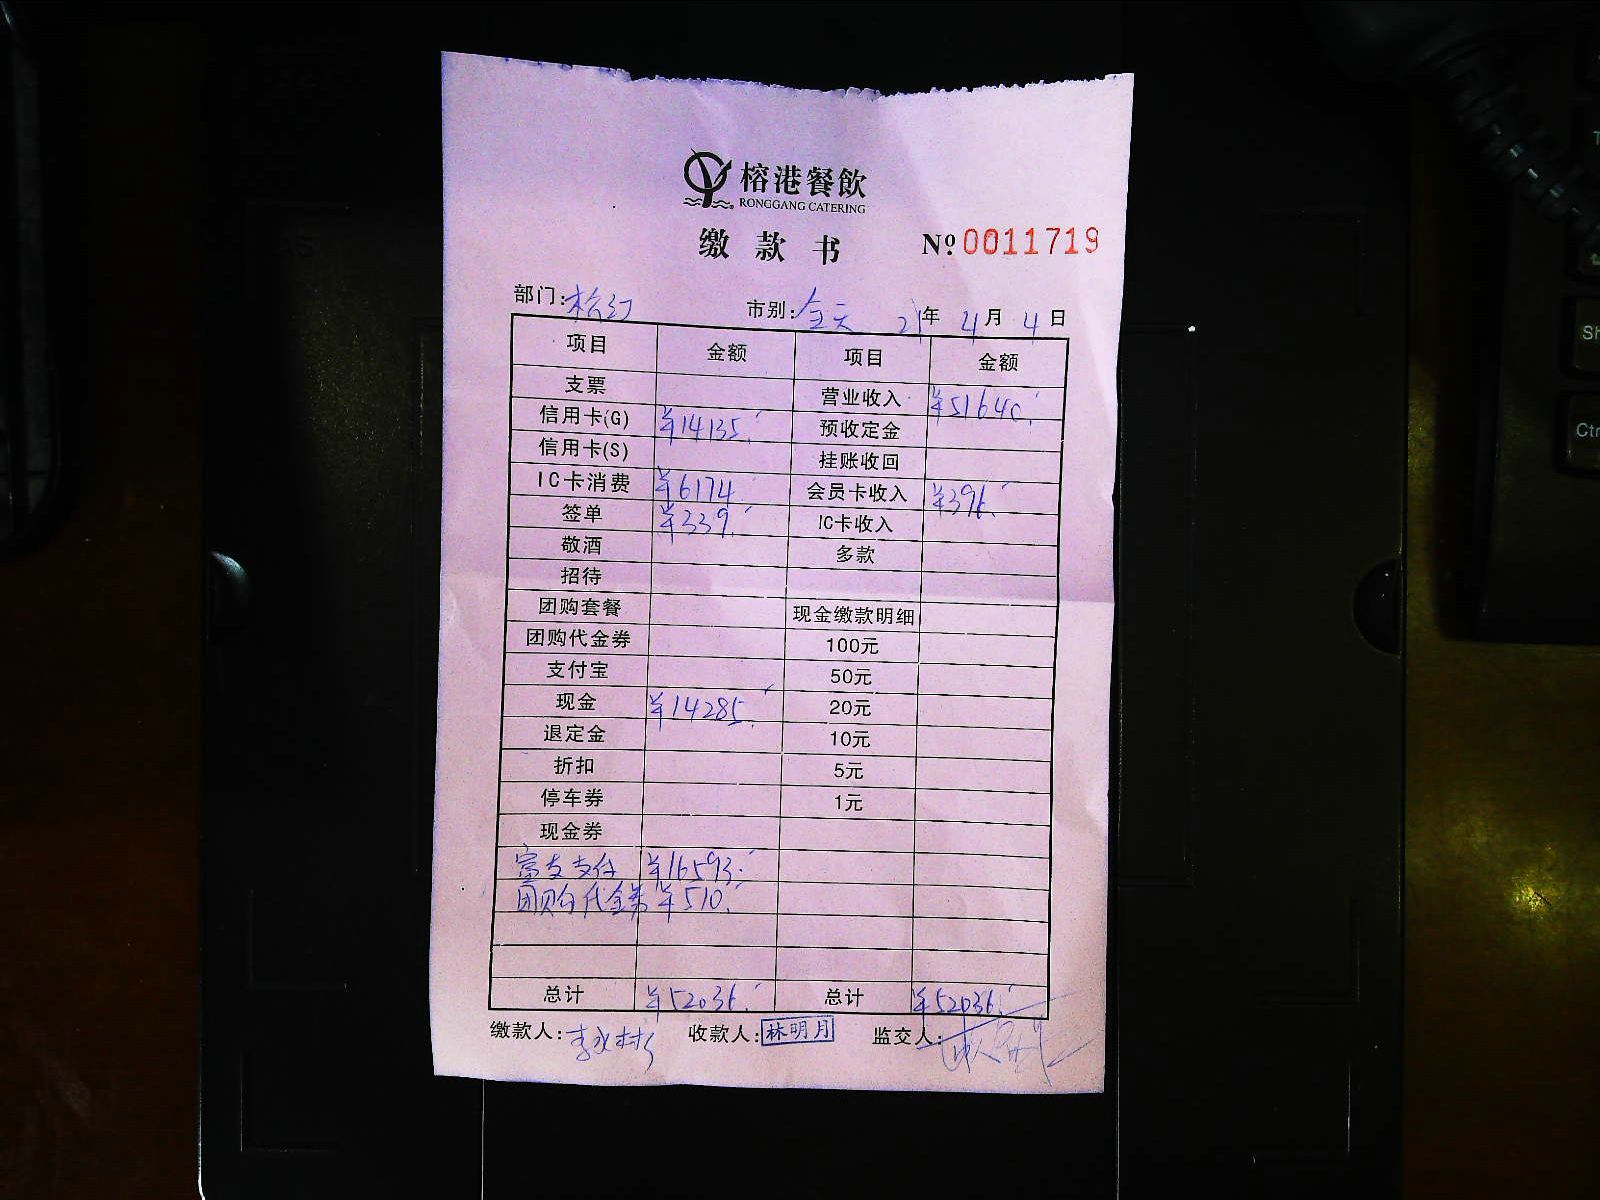 榕港餐飲
RONGGANG CATERING
缴款书 Nº 0011719
部门: 市别:全天 21年 4月 4日
项目 金额 项目 金额
支票 营业收入 ¥51640.
信用卡(G) ¥14135. 预收定金
信用卡(S) 挂账收回
IC卡消费 ¥6174. 会员卡收入 ¥396.
签单 ¥339. IC卡收入
敬酒 多款
招待
团购套餐 现金缴款明细
团购代金券 100元
支付宝 50元
现金 ¥14285. 20元
退定金 10元
折扣 5元
停车券 1元
现金券
富友支付 ¥16593.
团购代金券 ¥510.
总计 ¥52036. 总计 ¥52036.
缴款人: 收款人:林明月 监交人:
Sh
Ctr